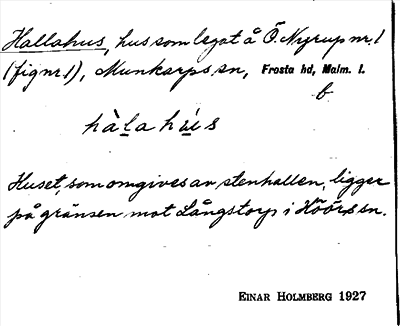 Hallahus, hus som legat å Ö. Nyrup nr. 1
(fig nr. 1), Munkarps sn, Frosta hd, Malm. l.
b
hàlahús
Huset, som omgives av stenhallen, ligger
på gränsen mot Långstorp i Höörs sn.
EINAR HOLMBERG 1927